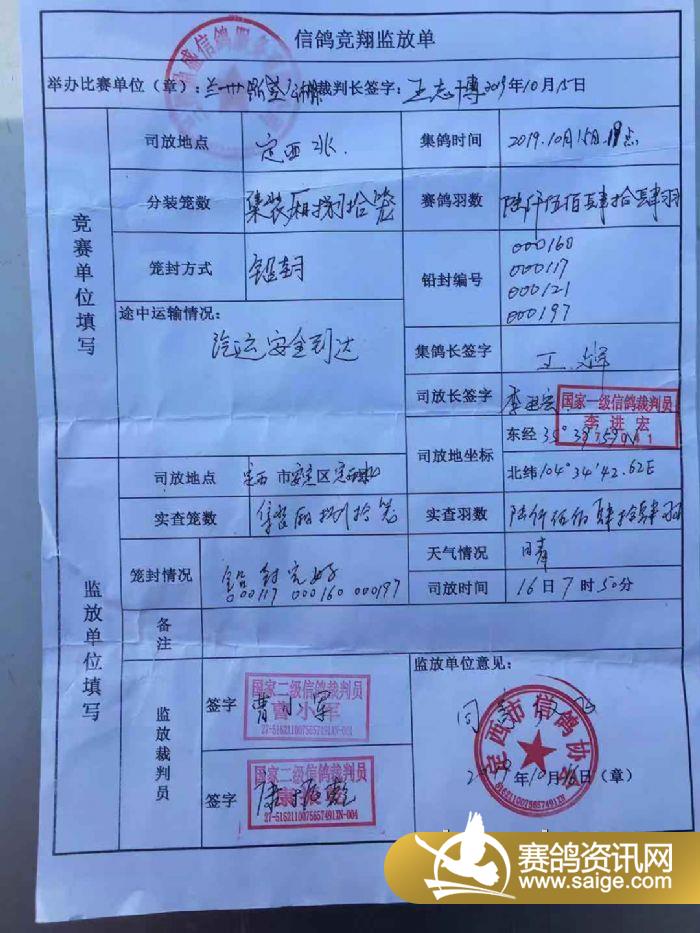 信鸽竞翔监放单
举办比赛单位（章）：兰州 裁判长签字：王志博 2019年10月15日
竞赛单位填写
司放地点 定西北. 集鸽时间 2019.10月15日.19点
分装笼数 集装厢捌拾笼 赛鸽羽数 陆仟伍佰肆拾肆羽
笼封方式 铅封 铅封编号 000160
000117
000121
000197
途中运输情况：
汽运安全到达
集鸽长签字 王
司放长签字 李进宏
国家一级信鸽裁判员
李进宏
司放地坐标 东经 35°39′
北纬 104°34′42.62E
监放单位填写
司放地点 定西市安定区定西北
实查笼数 集装厢捌拾笼 实查羽数 陆仟伍佰肆拾肆羽
笼封情况 铅封完好
000117 000160 000197
天气情况 晴
司放时间 16日7时50分
备注
监放裁判员
签字 曹小军
国家二级信鸽裁判员
曹小军
签字 康振乾
国家二级信鸽裁判员
27-5162110075657491XN-004
监放单位意见：
同意
定西市信鸽协会
2019年10月16日（章）
赛鸽资讯网
www.saige.com